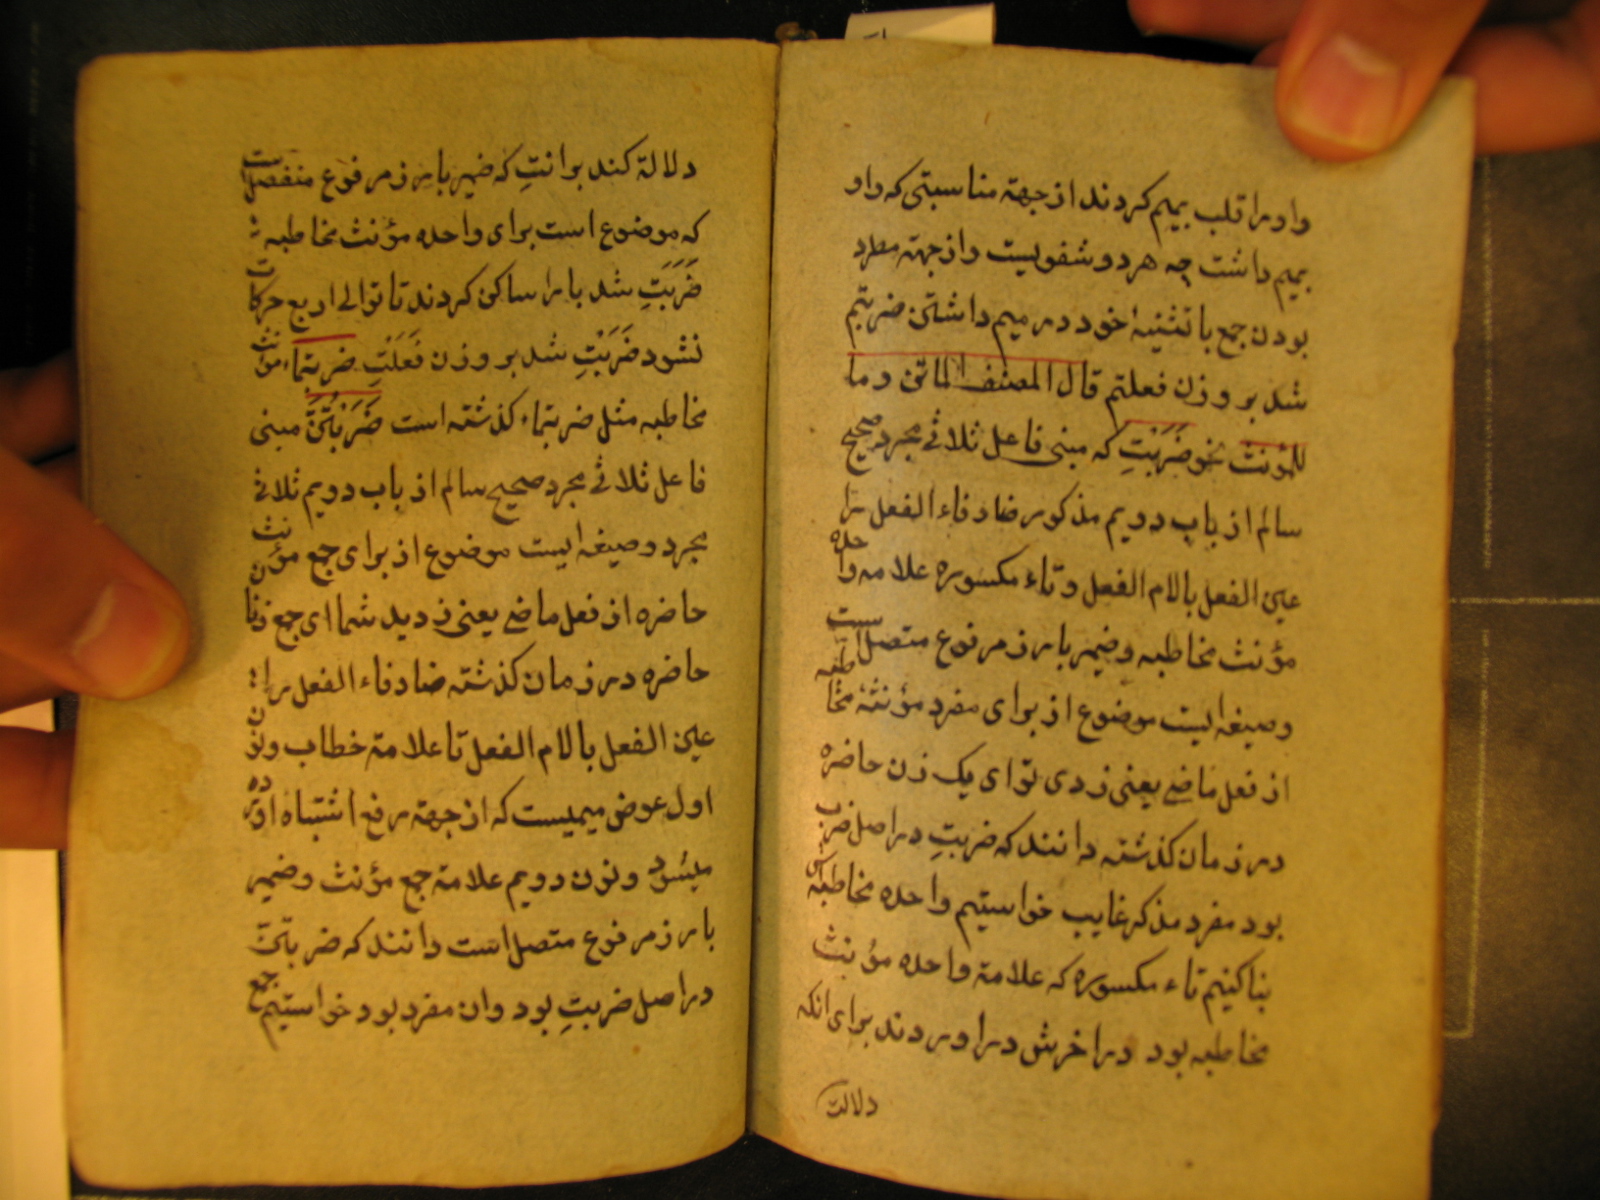 واو را قلب بمیم کردند از جهة مناسبتی که واو
بمیم داشت چه هردو شفویست واز جهة مطرد
بودن جمع با تثنیهٔ خود در میم داشتن ضربتم
شد بر وزن فعلتم قال المصنف الماتن وما
للمؤنث نحو ضَرَبْتِ که مبنی فاعل ثلاثی مجرد صحیح
سالم از باب دویم مذکور ضاد فاء الفعل را
عین الفعل با لام الفعل و تاء مکسوره علامه واحده
مؤنث مخاطبه وضمیر بارز مرفوع متصل است
وصیغه ایست موضوع از برای مفرد مؤنثهٔ مخاطبه
از فعل ماضی یعنی زدی تو ای یک زن حاضره
در زمان کذشته دانند که ضربتِ در اصل ضرب
بود مفرد مذکر غایب خواستیم واحده مخاطبه اش
بنا کنیم تاء مکسوره که علامة واحده مؤنث
مخاطبه بود در اخرش در اوردند برای انکه
دلالت
دلالة کند بر انتِ که ضمیر بارز مرفوع منفصل است
که موضوع است برای واحده مؤنث مخاطبه
ضَرَبَتِ شد با را ساکن کردند تا توالی اربع حرکات
نشود ضَرَبْتِ شد بر وزن فَعَلْتِ ضربتماء مؤنث
مخاطبه مثل ضربتماء کذشته است ضَرَبْتُنَّ مبنی
فاعل ثلاثی مجرد صحیح سالم از باب دویم ثلاثی
مجرد وصیغه ایست موضوع از برای جمع مؤنث
حاضره از فعل ماضی یعنی زدید شما ای جمع زنان
حاضره در زمان کذشته ضاد فاء الفعل را
عین الفعل با لام الفعل تا علامة خطاب ونون
اول عوض میمیست که از جهة رفع اشتباه اورده
میشود ونون دویم علامة جمع مؤنث وضمیر
بارز مرفوع متصل است دانند که ضربتنّ
در اصل ضربتِ بود وان مفرد بود خواستیم جمع